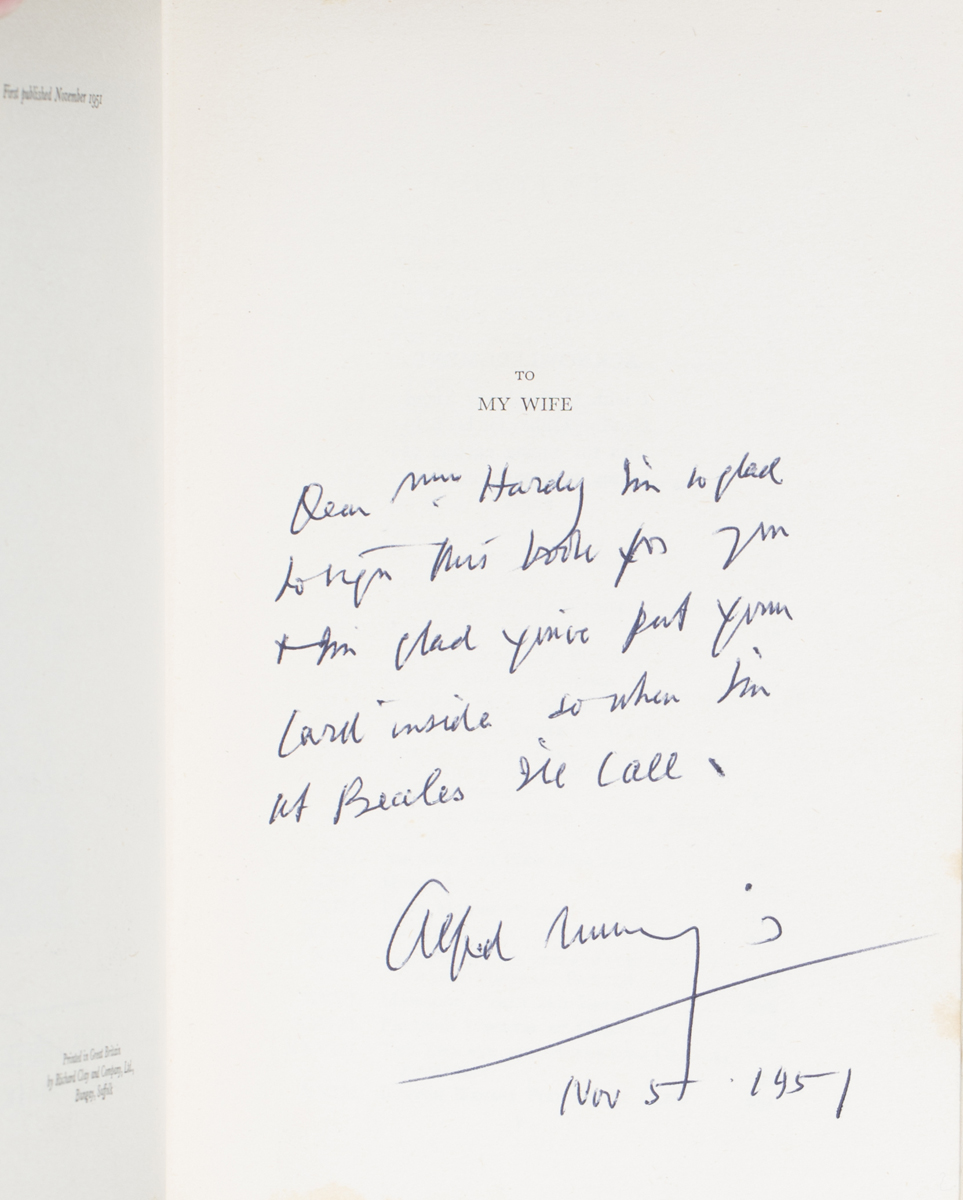 First published November 1951
TO
MY WIFE
Dear Mrs Hardy I'm so glad
to sign this book for you
+ I'm glad you've put your
Card inside so when I'm
at Beccles I'll Call.
Alfred Munnings
Nov 5th 1951
Printed in Great Britain
by Richard Clay and Company, Ltd.,
Bungay, Suffolk